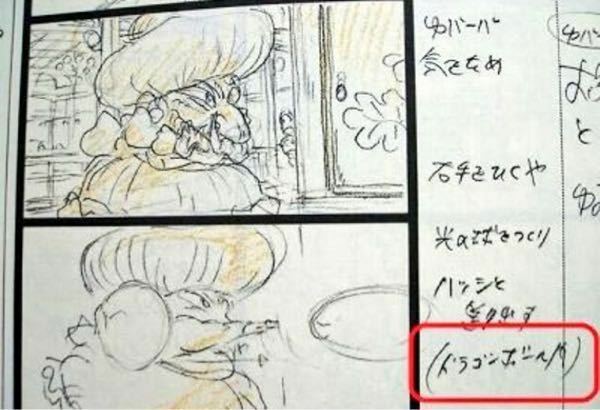 ゆバーバ
気をため
右手をひくや
光の球をつくり
ハッシと
出す
(ドラゴンボール)
ゆバー
と
ゆ